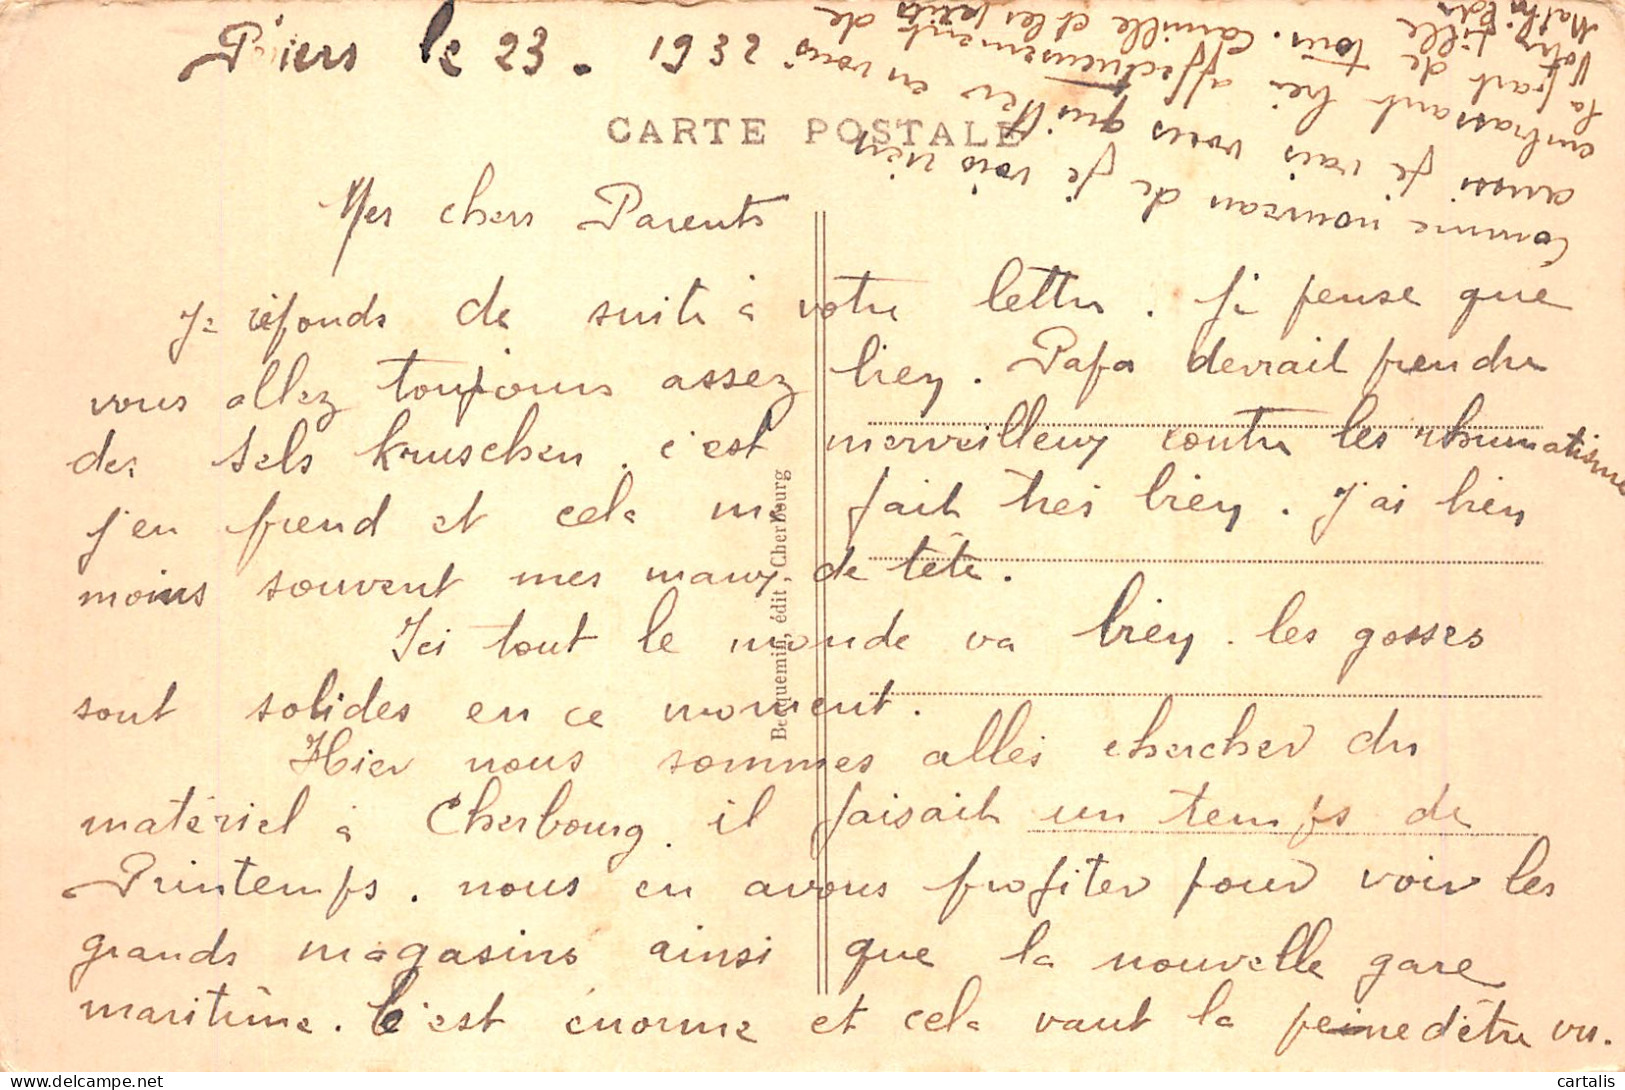 le 23. 1932
CARTE POSTALE
Mes chers Parents
Je réponds de suite à votre lettre. Je pense que
vous allez toujours assez bien. Papa devrait prendre
des sels kruschen. c'est merveilleux contre les rhumatisme
j'en prend et cela me fait très bien. J'ai bien
moins souvent mes maux de tête.
Ici tout le monde va bien. les gosses
sont solides en ce moment.
Hier nous sommes allés chercher du
matériel à Cherbourg. il faisait un temps de
Printemps. nous en avons profiter pour voir les
grands magasins ainsi que la nouvelle gare
maritime. C'est énorme et cela vaut la peine d'être vu.
Comme nouveau de je vois rien
aussi je vais vous quitter en vous
embrassant très affectueusement de
la part de tous. Camille et les petits
Votre fille
Becquemin, édit Cherbourg